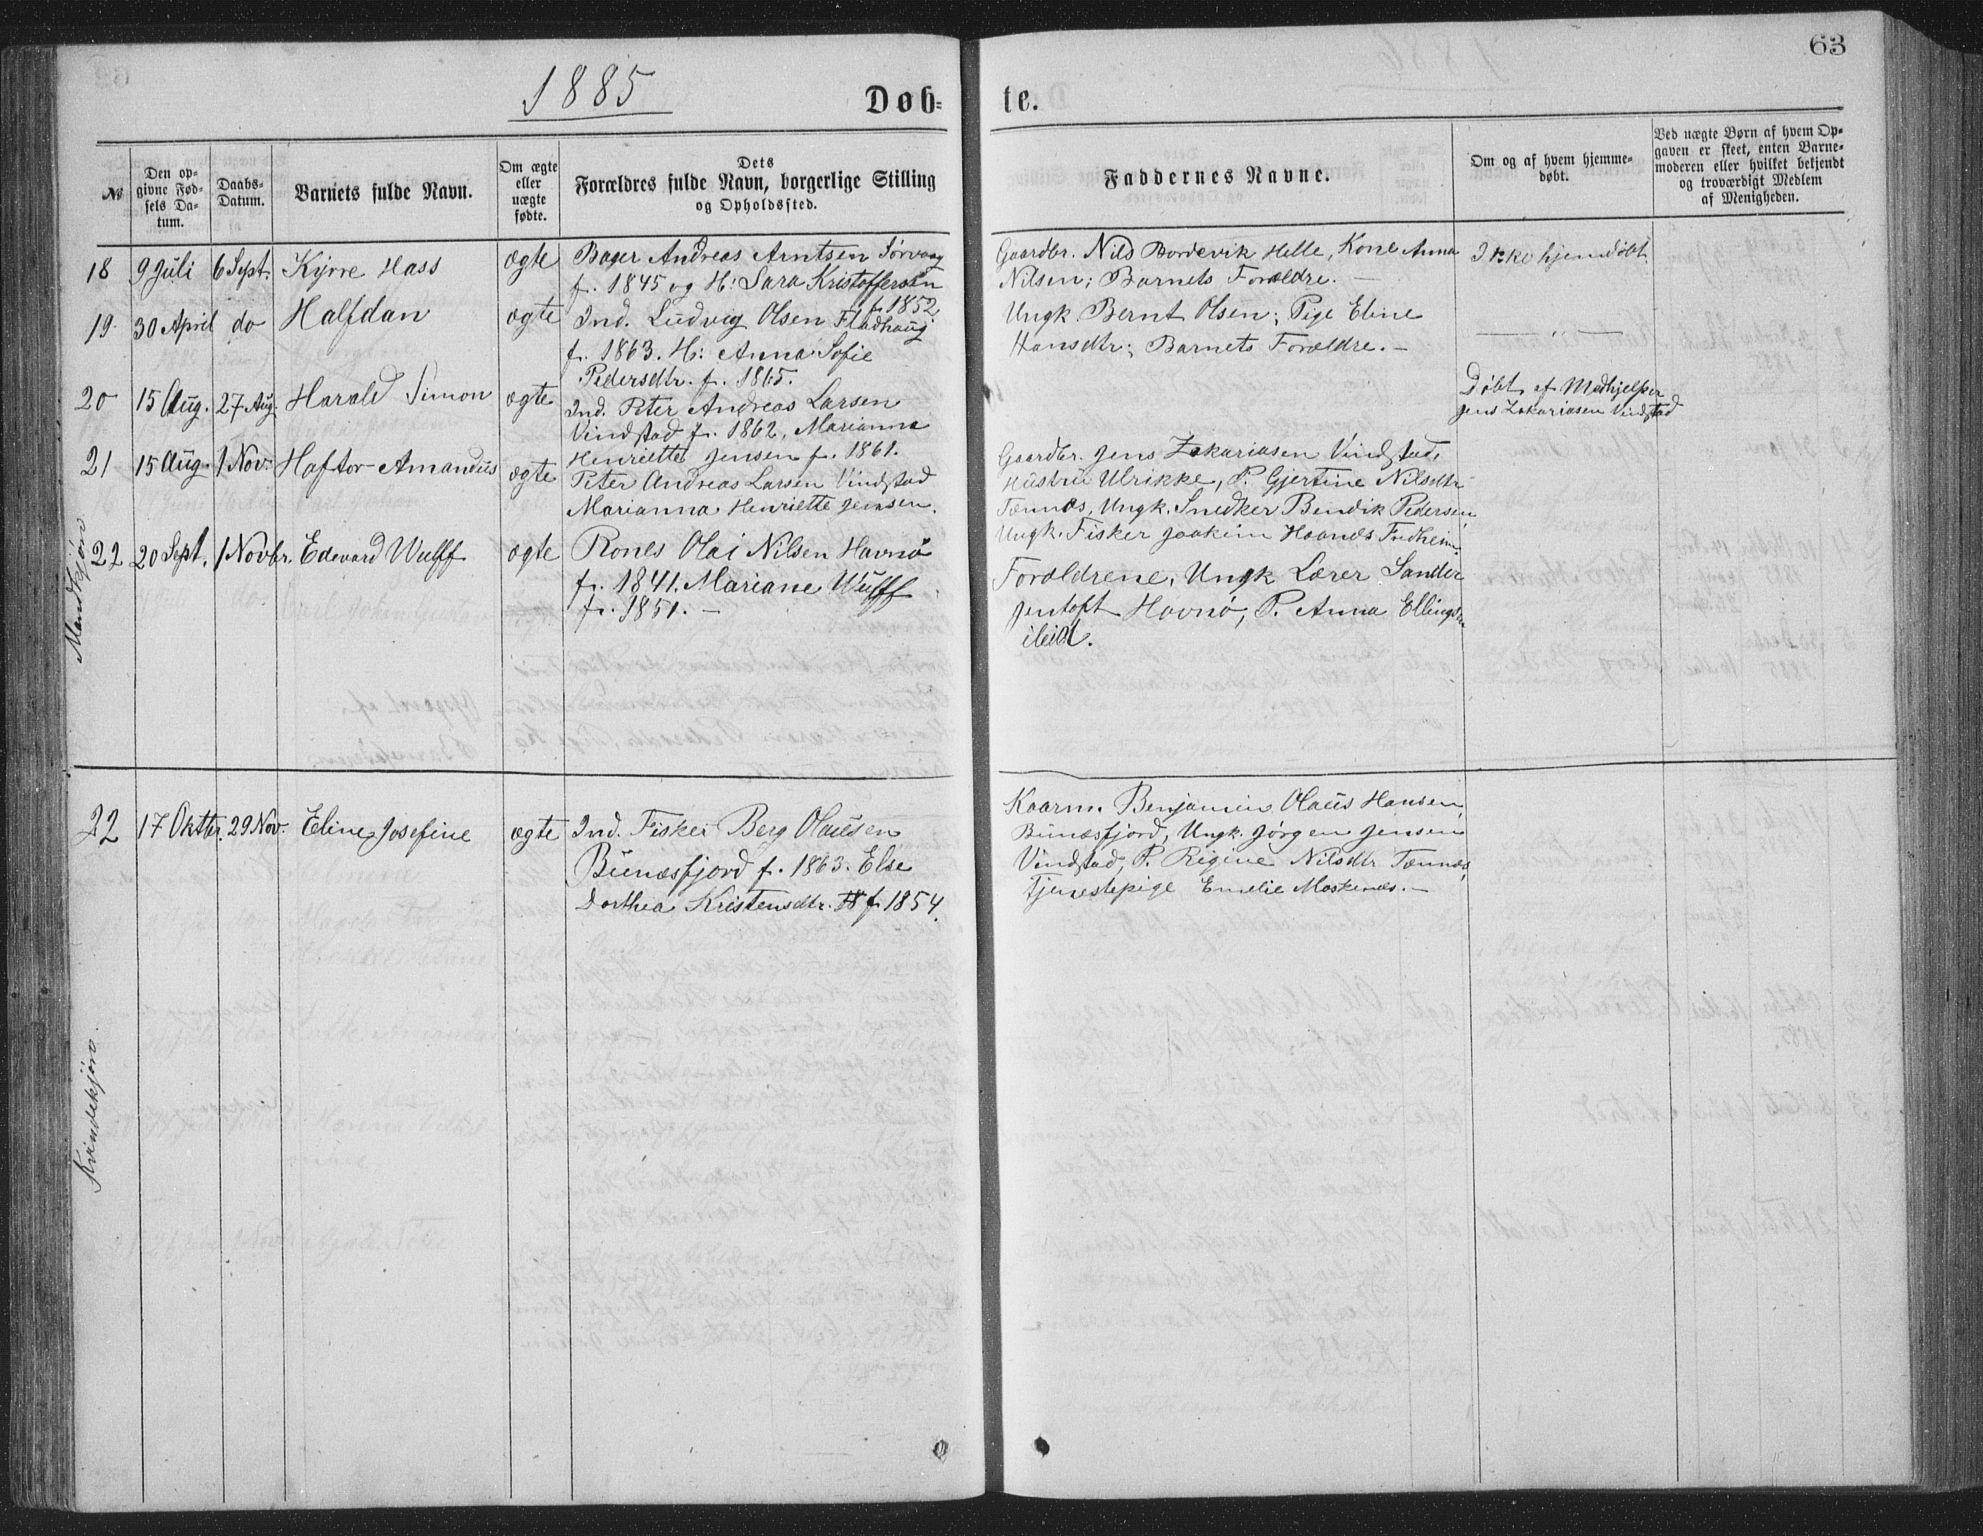 1885
63
Døb=
te.
№
Den op-
givne Fød-
sels Da-
tum.
Daabs-
Datum.
Barnets fulde Navn.
Om ægte
eller
uægte
fødte.
Dets
Forældres fulde Navn, borgerlige Stilling
og Opholdssted.
Faddernes Navne.
Om og af hvem hjemme-
døbt.
Ved uægte Børn af hvem Op-
gaven er skeet, enten Barne-
moderen eller hvilket bekjendt
og troværdigt Medlem
af Menigheden.
Mandkjøn
18 9 Juli 6 Sept. Kyrre Hass ægte
Bager Andreas Arntsen Sørvaag
f. 1845 og H: Sara Kristoffersen
f. 1852.
Gaardbr. Nils Bordevik Helle, Kone Anna
Nilsen; Barnets Forældre. —
Ikke hjemdøbt
19 30 April do Halfdan ægte
Ind. Ludvig Olsen Fladhaug
f. 1863. H: Anna Sofie
Pedersdtr. f. 1865.
Ungk. Bernt Olsen; Pige Eline
Hansdtr; Barnets Forældre. —
— " —
20 15 Aug. 27 Aug. Harald Simon ægte
Ind. Peter Andreas Larsen
Vindstad f. 1862, Marianna
Henriette Jensen f. 1861.
Døbt af Medhjelper
Jens Zakariasen Vindstad
21 15 Aug. 1 Nov. Haftor Amandus ægte
Peter Andreas Larsen Vindstad
Marianna Henriette Jensen.
Gaardbr. Jens Zakariasen Vindstad,
Hustru Ulrikke, P. Gjertine Nilsdtr
Tennes, Ungk. Snedker Bendik Pedersen
Ungk. Fisker Joakim Hannes
22 20 Sept. 1 Novbr. Edevard Wulff ægte
Rones Olai Nilsen Havnø
f. 1841. Mariane Wulff
f. 1851. —
Forældrene, Ungk Lærer Sander
Jentoft Havnø, P. Anna Ellingsdtr
ibid.
Kvindekjøn.
22 17 Oktbr. 29 Nov. Eline Josefine ægte
Ind. Fisker Berg Olausen
Bunæsfjord f. 1863. Else
Dorthea Kristensdtr. f. 1854.
Kaarm. Benjamin Olaus Hansen,
Bunæsfjord, Ungk. Jørgen Jensen
Vindstad, P. Regine Nilsdtr Tennes,
Tjenestepige Emelie Moskenes. —